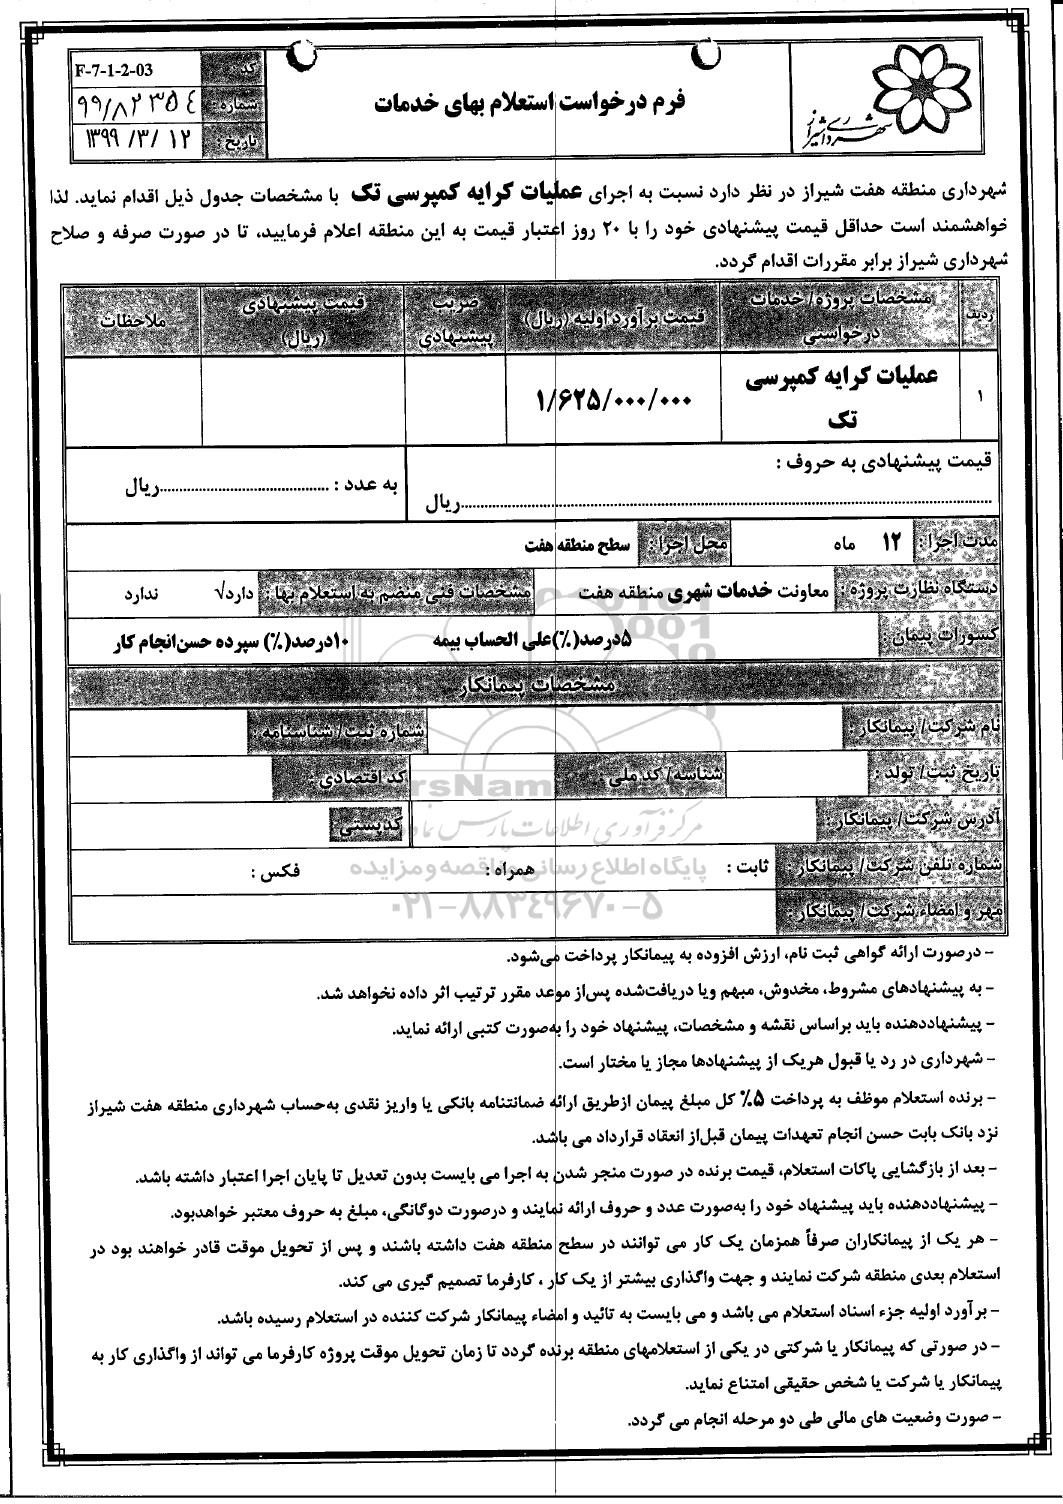 شهرداری شیراز
فرم درخواست استعلام بهای خدمات
کد : F-7-1-2-03
شماره : ۹۹/۸۲۳۵٤
تاریخ : ۱۳۹۹/۳/۱۲
شهرداری منطقه هفت شیراز در نظر دارد نسبت به اجرای عملیات کرایه کمپرسی تک با مشخصات جدول ذیل اقدام نماید. لذا
خواهشمند است حداقل قیمت پیشنهادی خود را با ۲۰ روز اعتبار قیمت به این منطقه اعلام فرمایید، تا در صورت صرفه و صلاح
شهرداری شیراز برابر مقررات اقدام گردد.
ردیف
مشخصات پروژه/ خدمات
درخواستی
قیمت برآورد اولیه (ریال)
ضریب
پیشنهادی
قیمت پیشنهادی
(ریال)
ملاحظات
۱
عملیات کرایه کمپرسی
تک
۱/۶۲۵/۰۰۰/۰۰۰
قیمت پیشنهادی به حروف :
................................ریال
به عدد : ................................ریال
مدت اجرا : ۱۲ ماه محل اجرا : سطح منطقه هفت
دستگاه نظارت پروژه : معاونت خدمات شهری منطقه هفت مشخصات فنی منضم به استعلام بها : دارد√ ندارد
کسورات پیمان : ۵درصد(%)علی الحساب بیمه ۱۰درصد(%) سپرده حسن‌انجام کار
مشخصات پیمانکار
نام شرکت/ پیمانکار : شماره ثبت/ شناسنامه
تاریخ ثبت/ تولد : شناسه/ کد ملی : کد اقتصادی :
آدرس شرکت/ پیمانکار : کدپستی
شماره تلفن شرکت/ پیمانکار : ثابت : همراه : فکس :
مهر و امضاء شرکت/ پیمانکار :
مرکز فرآوری اطلاعات پارس نماد
پایگاه اطلاع رسانی مناقصه و مزایده
۰۲۱-۸۸۳۴۹۶۷۰-۵
– درصورت ارائه گواهی ثبت نام، ارزش افزوده به پیمانکار پرداخت می‌شود.
– به پیشنهادهای مشروط، مخدوش، مبهم ویا دریافت‌شده پس‌از موعد مقرر ترتیب اثر داده نخواهد شد.
– پیشنهاددهنده باید براساس نقشه و مشخصات، پیشنهاد خود را به‌صورت کتبی ارائه نماید.
– شهرداری در رد یا قبول هریک از پیشنهادها مجاز یا مختار است.
– برنده استعلام موظف به پرداخت ۵% کل مبلغ پیمان ازطریق ارائه ضمانتنامه بانکی یا واریز نقدی به‌حساب شهرداری منطقه هفت شیراز
نزد بانک بابت حسن انجام تعهدات پیمان قبل‌از انعقاد قرارداد می باشد.
– بعد از بازگشایی پاکات استعلام، قیمت برنده در صورت منجر شدن به اجرا می بایست بدون تعدیل تا پایان اجرا اعتبار داشته باشد.
– پیشنهاددهنده باید پیشنهاد خود را به‌صورت عدد و حروف ارائه نمایند و درصورت دوگانگی، مبلغ به حروف معتبر خواهدبود.
– هر یک از پیمانکاران صرفاً همزمان یک کار می توانند در سطح منطقه هفت داشته باشند و پس از تحویل موقت قادر خواهند بود در
استعلام بعدی منطقه شرکت نمایند و جهت واگذاری بیشتر از یک کار ، کارفرما تصمیم گیری می کند.
– برآورد اولیه جزء اسناد استعلام می باشد و می بایست به تائید و امضاء پیمانکار شرکت کننده در استعلام رسیده باشد.
– در صورتی که پیمانکار یا شرکتی در یکی از استعلامهای منطقه برنده گردد تا زمان تحویل موقت پروژه کارفرما می تواند از واگذاری کار به
پیمانکار یا شرکت یا شخص حقیقی امتناع نماید.
– صورت وضعیت های مالی طی دو مرحله انجام می گردد.